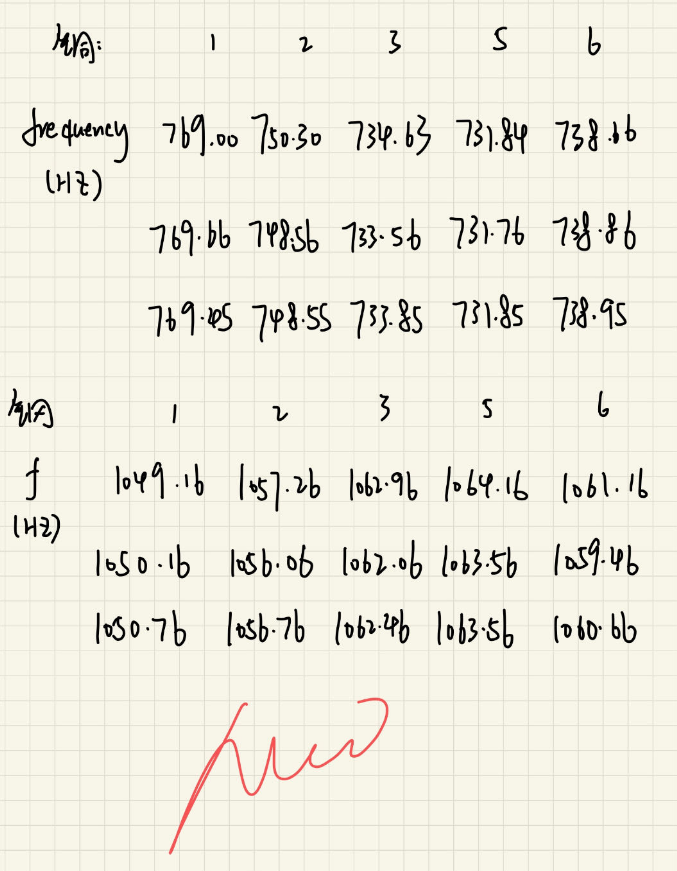 1 2 3 5 6
frequency 769.00 750.30 734.63 731.84 738.66
(HZ)
769.66 748.56 733.56 731.76 738.86
769.45 748.55 733.85 731.85 738.95
1 2 3 5 6
f 1049.16 1057.26 1062.96 1064.16 1061.16
(HZ)
1050.16 1056.06 1062.06 1063.56 1059.46
1050.76 1056.76 1062.46 1063.56 1060.66